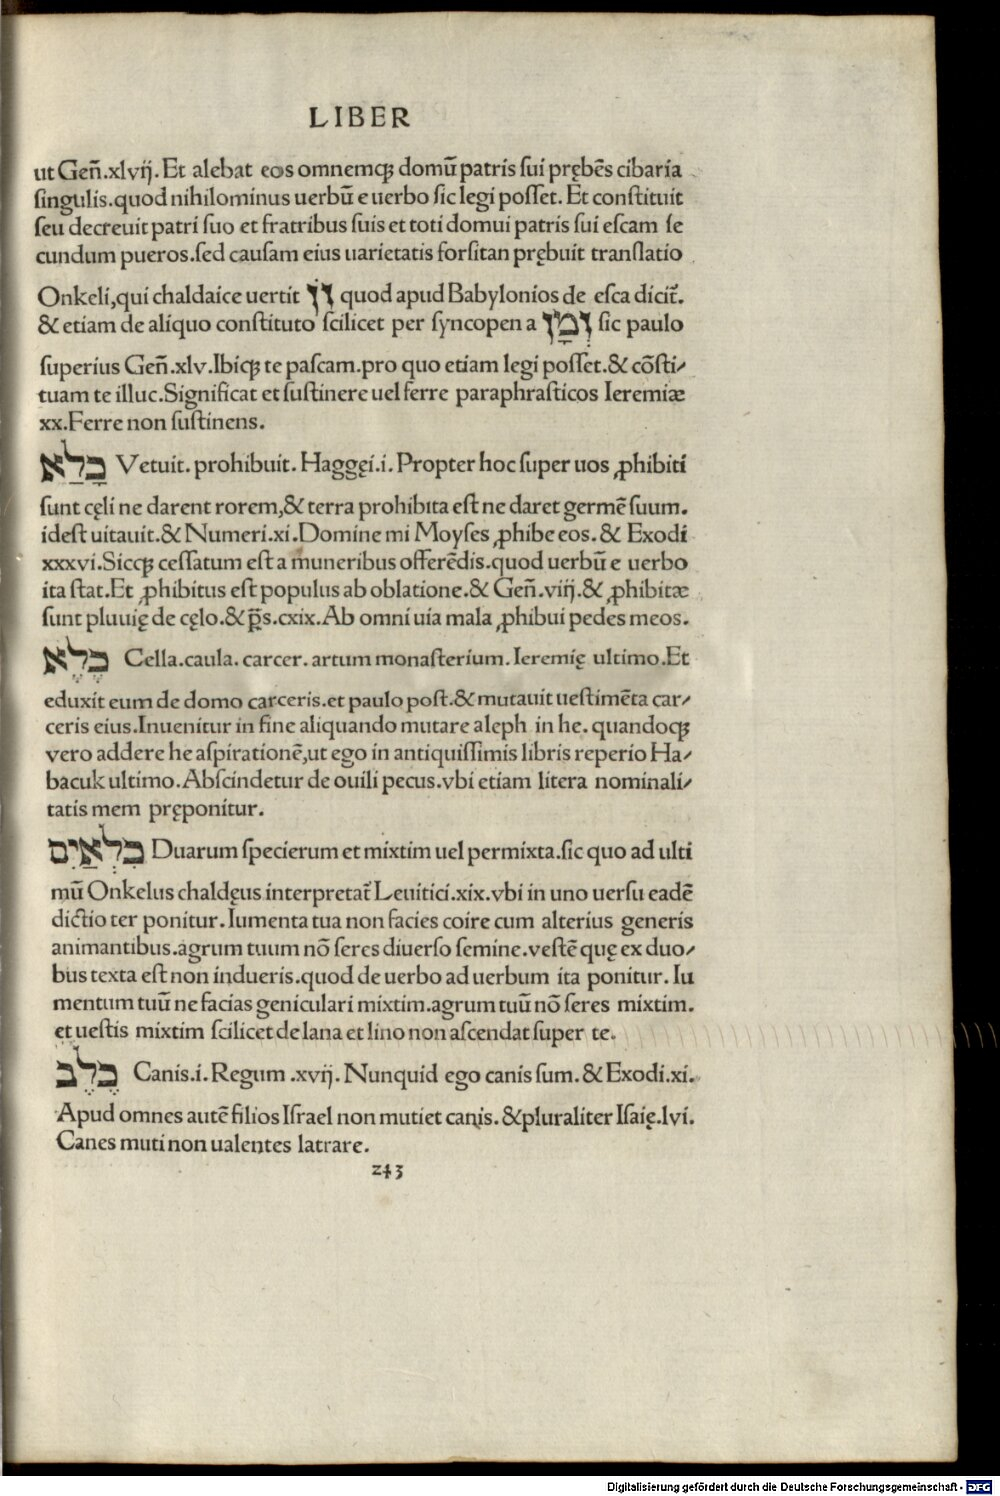 LIBER
ut Geñ.xlvij.Et alebat eos omnemq; domū patris sui prębēs cibaria
singulis.quod nihilominus uerbū e uerbo sic legi posset. Et constituit
seu decreuit patri suo et fratribus suis et toti domui patris sui escam se
cundum pueros.sed causam eius uarietatis forsitan prębuit translatio
Onkeli,qui chaldaice uertit זן quod apud Babylonios de esca dicit̄.
& etiam de aliquo constituto scilicet per syncopen a זְמָן sic paulo
superius Geñ.xlv.Ibiq; te pascam.pro quo etiam legi posset.& cōsti/
tuam te illuc.Significat et sustinere uel ferre paraphrasticos Ieremiæ
xx.Ferre non sustinens.
כָּלַא Vetuit. prohibuit. Haggęi.i. Propter hoc super uos ꝓhibiti
sunt cęli ne darent rorem,& terra prohibita est ne daret germē suum.
idest uitauit.& Numeri.xi.Domine mi Moyses ꝓhibe eos. & Exodi
xxxvi.Sicq; cessatum est a muneribus offerēdis.quod uerbū e uerbo
ita stat.Et ꝓhibitus est populus ab oblatione.& Geñ.viij.& ꝓhibitæ
sunt pluuię de cęlo.& p̄s.cxix.Ab omni uia mala ꝓhibui pedes meos.
כֶּלֶא Cella.caula. carcer. artum monasterium. Ieremię ultimo.Et
eduxit eum de domo carceris.et paulo post.& mutauit uestimēta car/
ceris eius.Inuenitur in fine aliquando mutare aleph in he. quandoq;
vero addere he aspirationē,ut ego in antiquissimis libris reperio Ha/
bacuk ultimo.Abscindetur de ouili pecus.vbi etiam litera nominali/
tatis mem pręponitur.
כִּלְאַיִם Duarum specierum et mixtim uel permixta.sic quo ad ulti
mū Onkelus chaldęus interpretat̄ Leuitici.xix.vbi in uno uersu eadē
dictio ter ponitur.Iumenta tua non facies coire cum alterius generis
animantibus.agrum tuum nō seres diuerso semine.vestē quę ex duo/
bus texta est non indueris.quod de uerbo ad uerbum ita ponitur. Iu
mentum tuū ne facias geniculari mixtim.agrum tuū nō seres mixtim.
et uestis mixtim scilicet de lana et lino non ascendat super te.
כֶּלֶב Canis.i.Regum .xvij.Nunquid ego canis sum. & Exodi.xi.
Apud omnes autē filios Israel non mutiet canis. &pluraliter Isaię.lvi.
Canes muti non ualentes latrare.
243
Digitalisierung gefördert durch die Deutsche Forschungsgemeinschaft - DFG